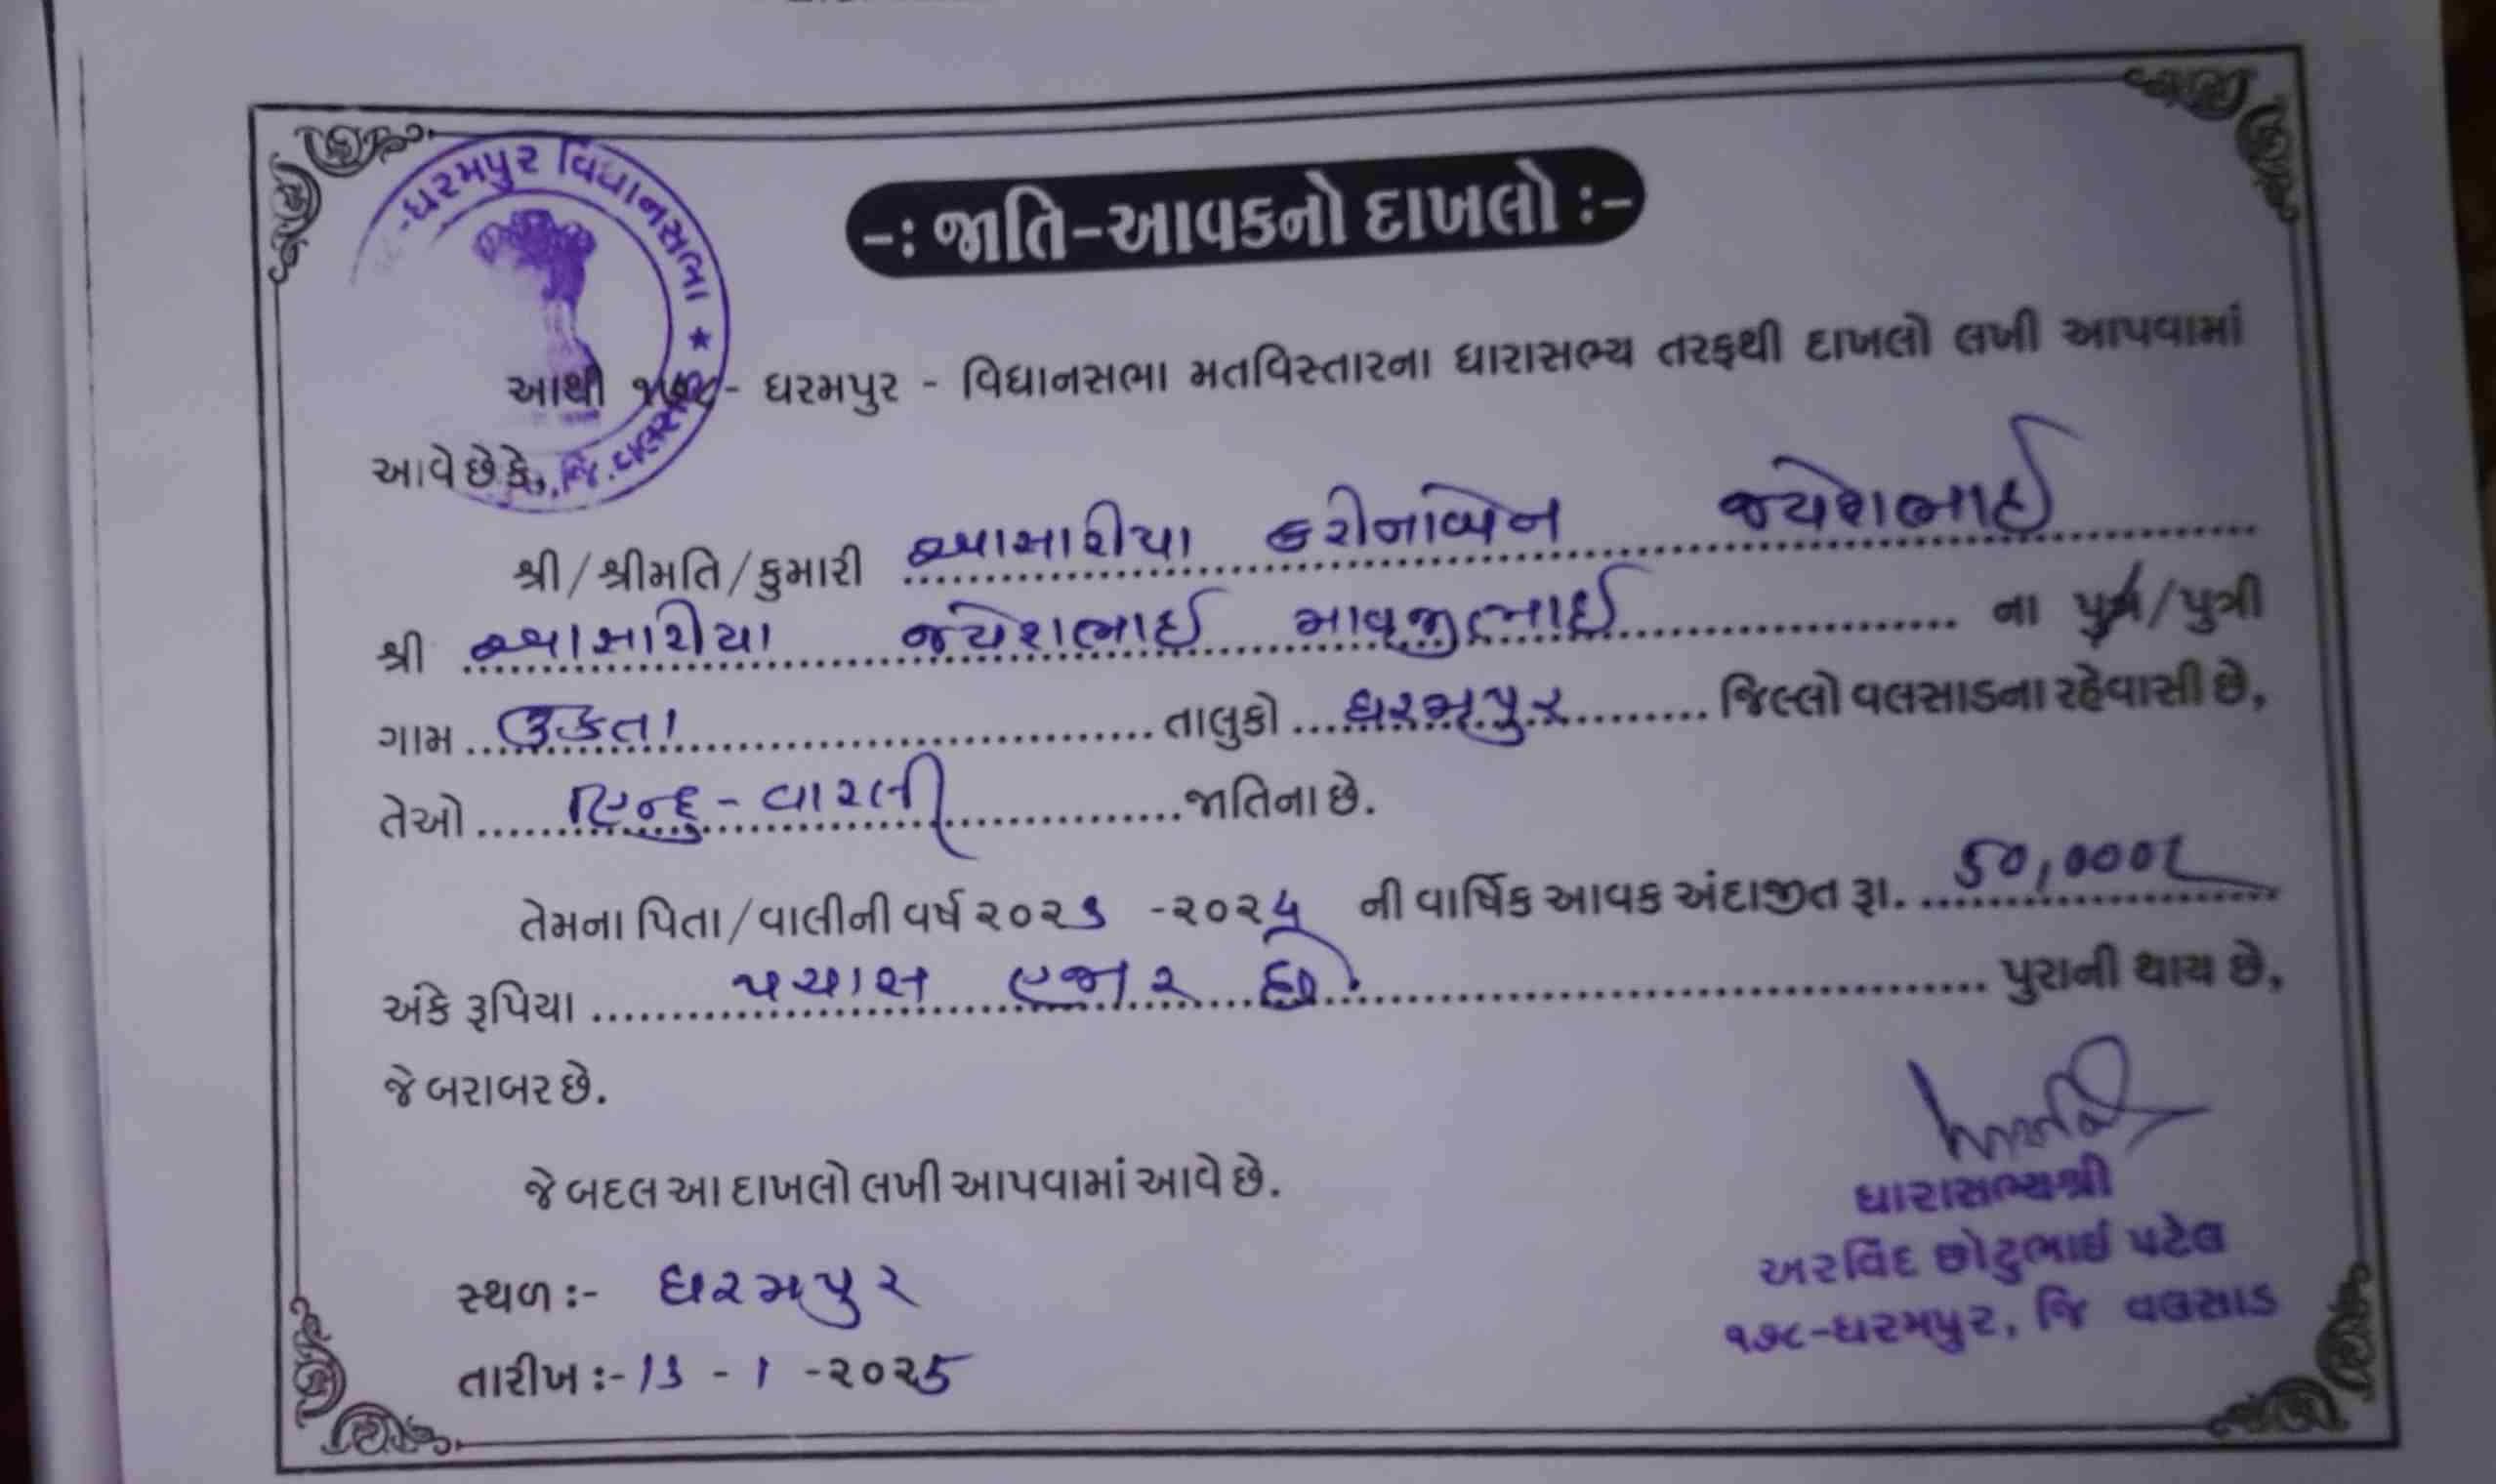 -ધરમપુર વિધાનસભા ★
જિ. વલસાડ
-: જાતિ-આવકનો દાખલો :-
આથી ૧૭૮- ધરમપુર - વિધાનસભા મતવિસ્તારના ધારાસભ્ય તરફથી દાખલો લખી આપવામાં
આવે છે કે,
શ્રી/શ્રીમતિ/કુમારી કરીનાબેન જયેશભાઈ
શ્રી જયેશભાઈ માવજીભાઈ ના પુત્ર/પુત્રી
ગામ ઉકતા તાલુકો ધરમપુર જિલ્લો વલસાડના રહેવાસી છે,
તેઓ હિન્દુ - વારલી જાતિના છે.
તેમના પિતા/વાલીની વર્ષ ૨૦૨ -૨૦૨ ની વાર્ષિક આવક અંદાજીત રૂા.
અંકે રૂપિયા પચાસ હજાર પુરાની થાય છે,
જે બરાબર છે.
જે બદલ આ દાખલો લખી આપવામાં આવે છે.
ધારાસભ્યશ્રી
અરવિંદ છોટુભાઈ પટેલ
૧૭૮-ધરમપુર, જિ વલસાડ
સ્થળ :- ધરમપુર
તારીખ :- 13 - 1 -૨૦૨5